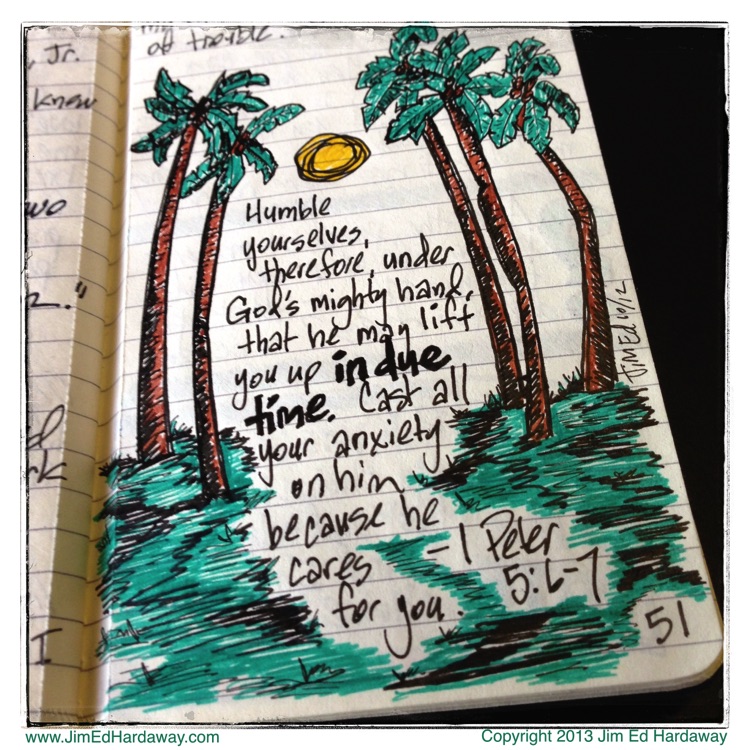 , Jr.
know
wo
I
of trouble.
Humble
yourselves,
therefore, under
God's mighty hand,
that he may lift
you up in due
time. Cast all
your anxiety
on him
because he
cares
for you.
-1 Peter
5:6-7
Jim Ed 10/12
51
www.JimEdHardaway.com
Copyright 2013 Jim Ed Hardaway